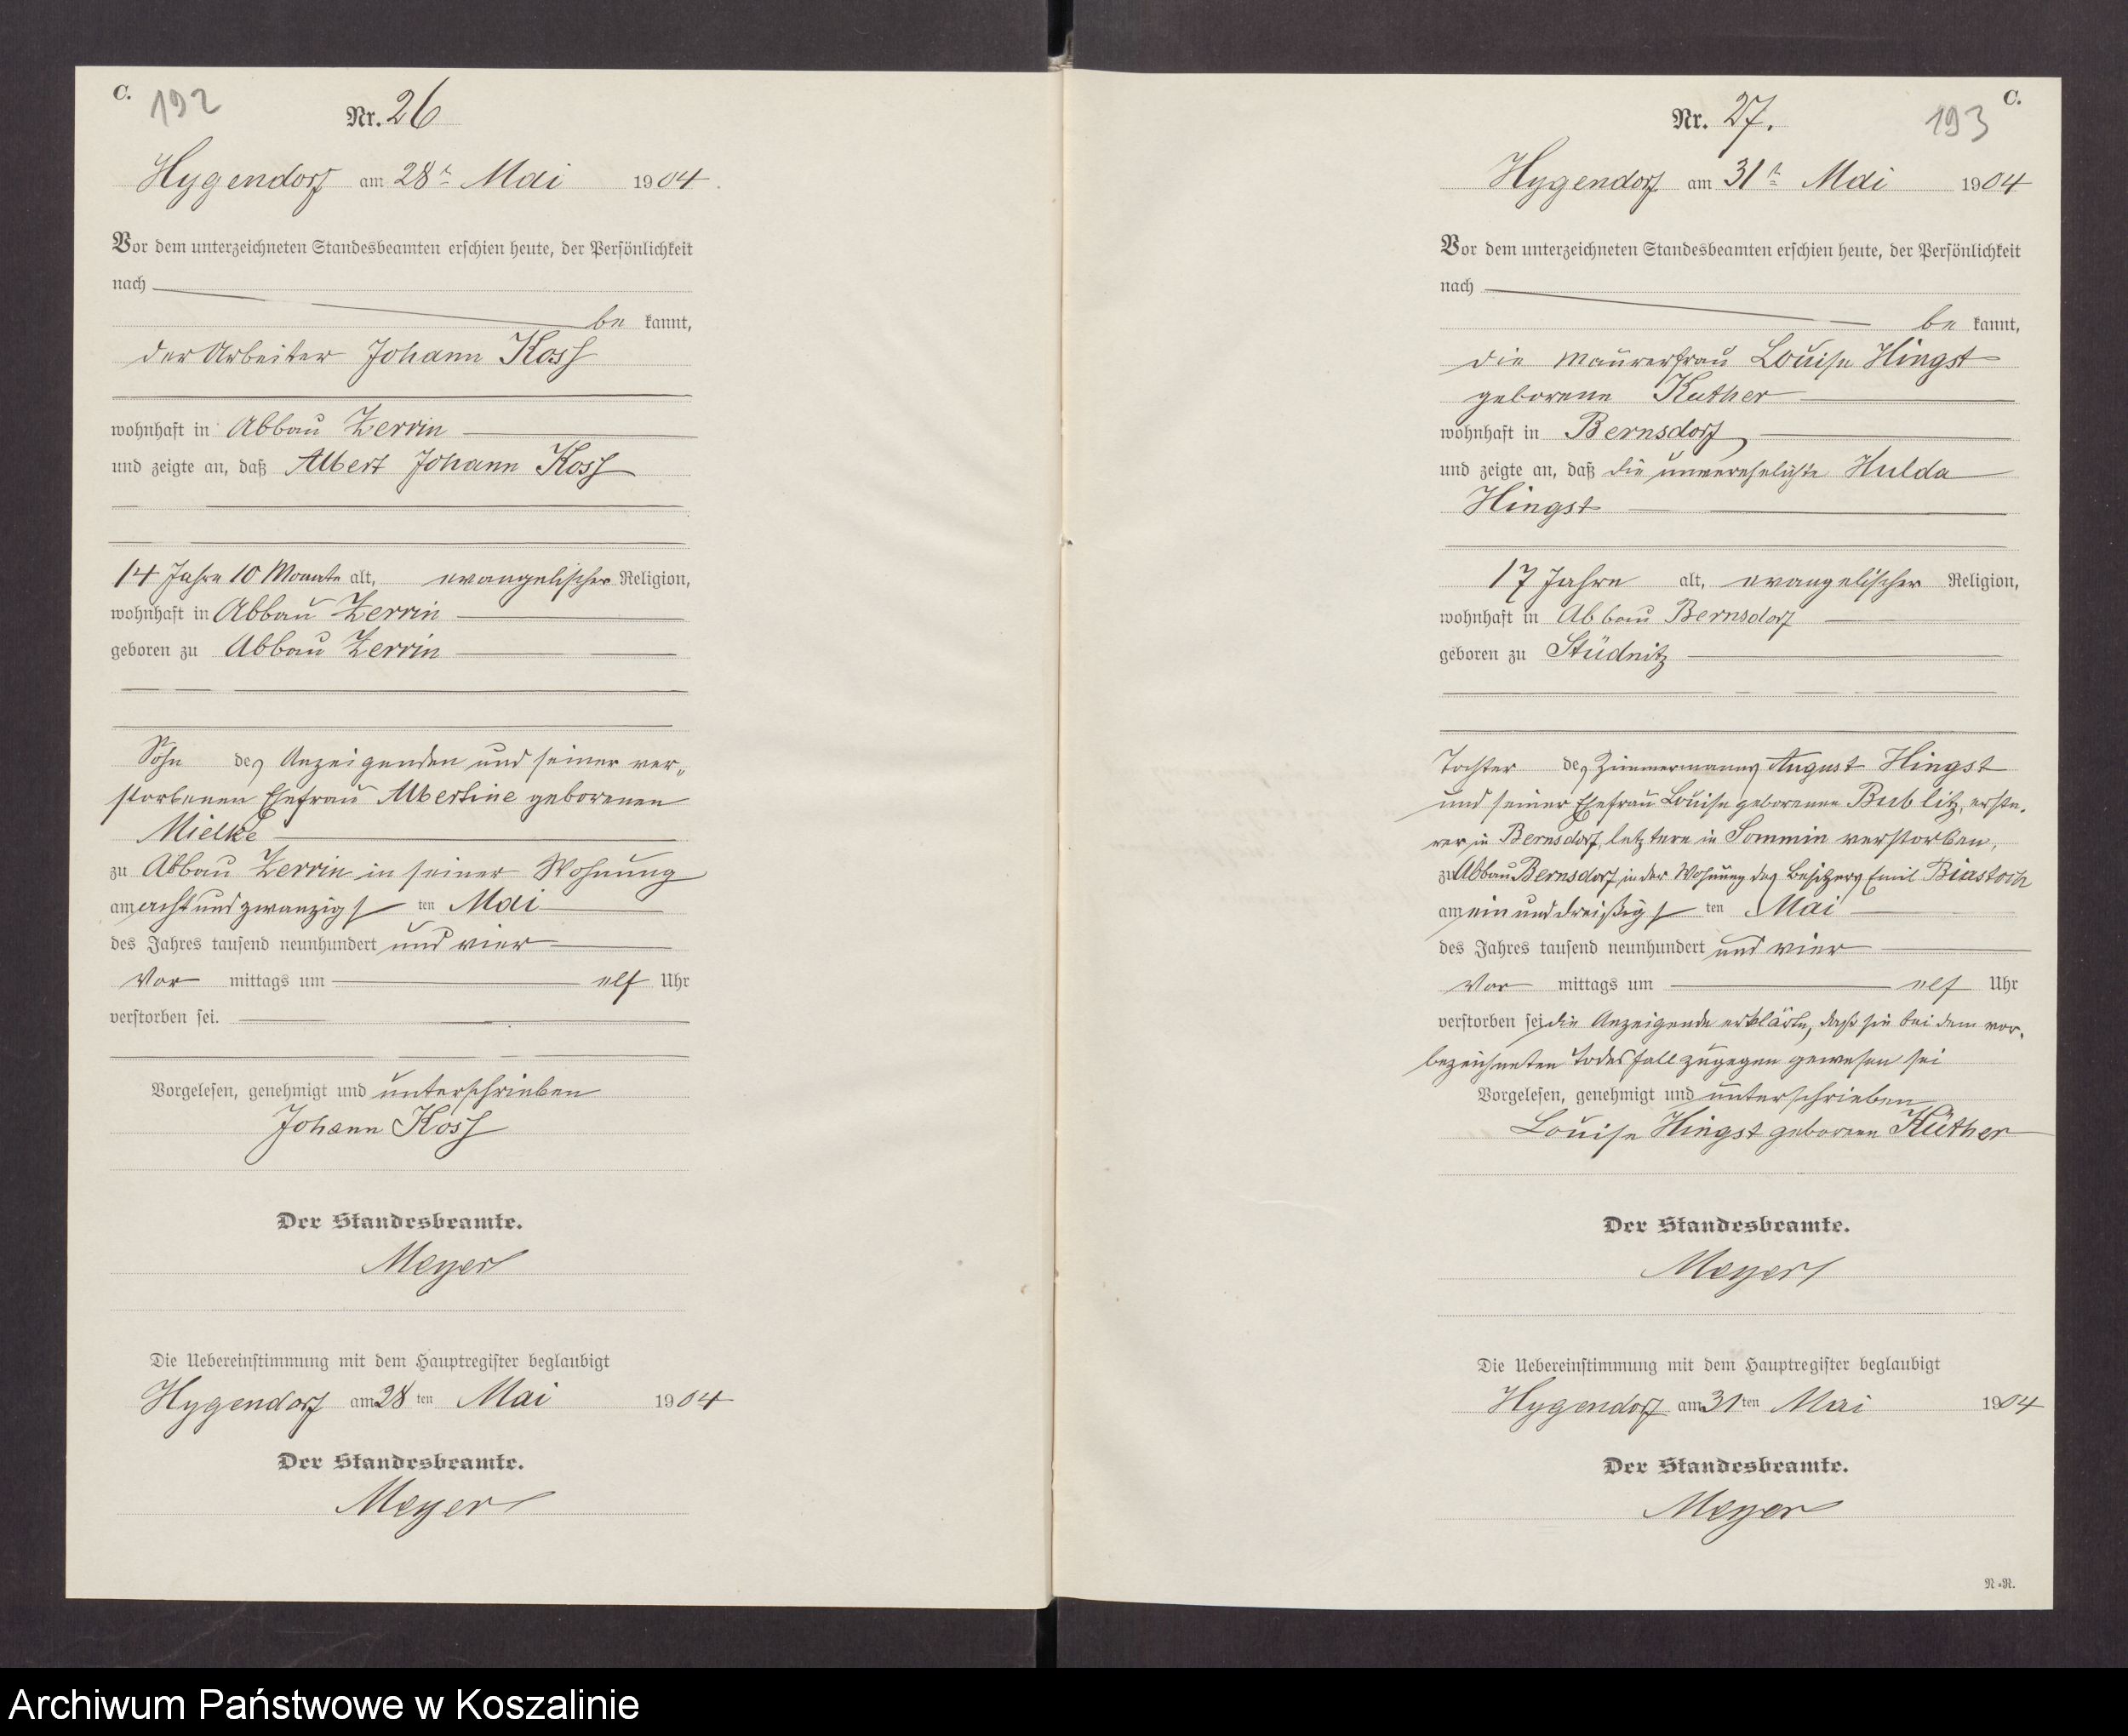 C. 192
Nr. 26
Hygendorf am 28ten Mai 1904.
Vor dem unterzeichneten Standesbeamten erschien heute, der Persönlichkeit
nach
be kannt,
der Arbeiter Johann Koss
wohnhaft in Abbau Zerrin
und zeigte an, daß Albert Johann Koss
14 Jahre 10 Monate alt, evangelischer Religion,
wohnhaft in Abbau Zerrin
geboren zu Abbau Zerrin
Sohn des Anzeigenden und seiner ver„
storbenen Ehefrau Albertine geborenen
Mielke
zu Abbau Zerrin in seiner Wohnung
am acht und zwanzigs ten Mai
des Jahres tausend neunhundert und vier
Vor mittags um elf Uhr
verstorben sei.
Vorgelesen, genehmigt und unterschrieben
Johann Koss
Der Standesbeamte.
Meyer
Die Uebereinstimmung mit dem Hauptregister beglaubigt
Hygendorf am 28 ten Mai 1904
Der Standesbeamte.
Meyer
193 C.
Nr. 27.
Hygendorf am 31ten Mai 1904
Vor dem unterzeichneten Standesbeamten erschien heute, der Persönlichkeit
nach
be kannt,
die Maurerfrau Louise Hingst
geborene Kuther
wohnhaft in Bernsdorf
und zeigte an, daß die unverehelichte Hulda
Hingst
17 Jahre alt, evangelischer Religion,
wohnhaft in Abbau Bernsdorf
geboren zu Stüdnitz
Tochter des Zimmermanns August Hingst
und seiner Ehefrau Louise geborenen Bublitz, erste-
rer in Bernsdorf, letztere in Sommin verstorben,
zu Abbau Bernsdorf, in der Wohnung des Besitzers Emil Biastoch
am ein und dreißigs ten Mai
des Jahres tausend neunhundert und vier
Vor mittags um elf Uhr
verstorben sei die Anzeigende erklärte, daß sie bei dem vor-
bezeichneten Todesfall zugegen gewesen sei
Vorgelesen, genehmigt und unterschrieben
Louise Hingst geborene Küther
Der Standesbeamte.
Meyer
Die Uebereinstimmung mit dem Hauptregister beglaubigt
Hygendorf am 31 ten Mai 1904
Der Standesbeamte.
Meyer
N.=N.
Archiwum Państwowe w Koszalinie